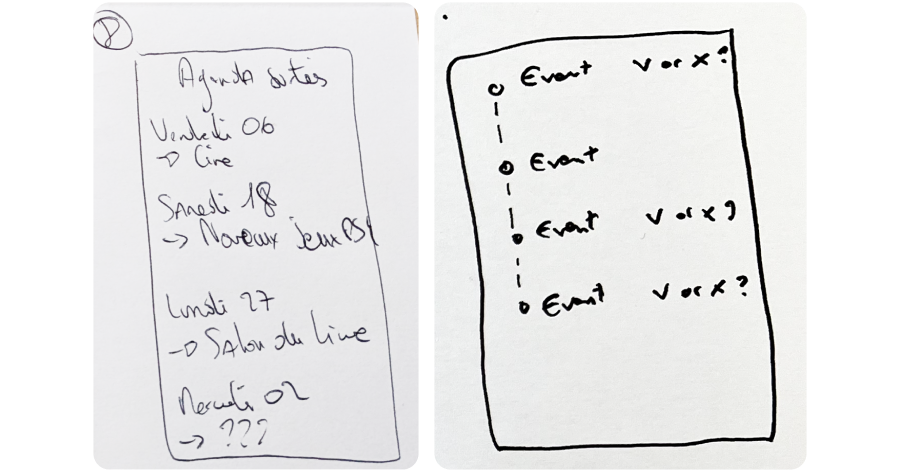 Agenda sorties
Vendredi 06
→ Cine
Samedi 18
→ Noveaux jeux PS4
Lundi 27
→ Salon du Livre
Mercredi 02
→ ???
Event V or X?
Event
Event V or X?
Event V or X?